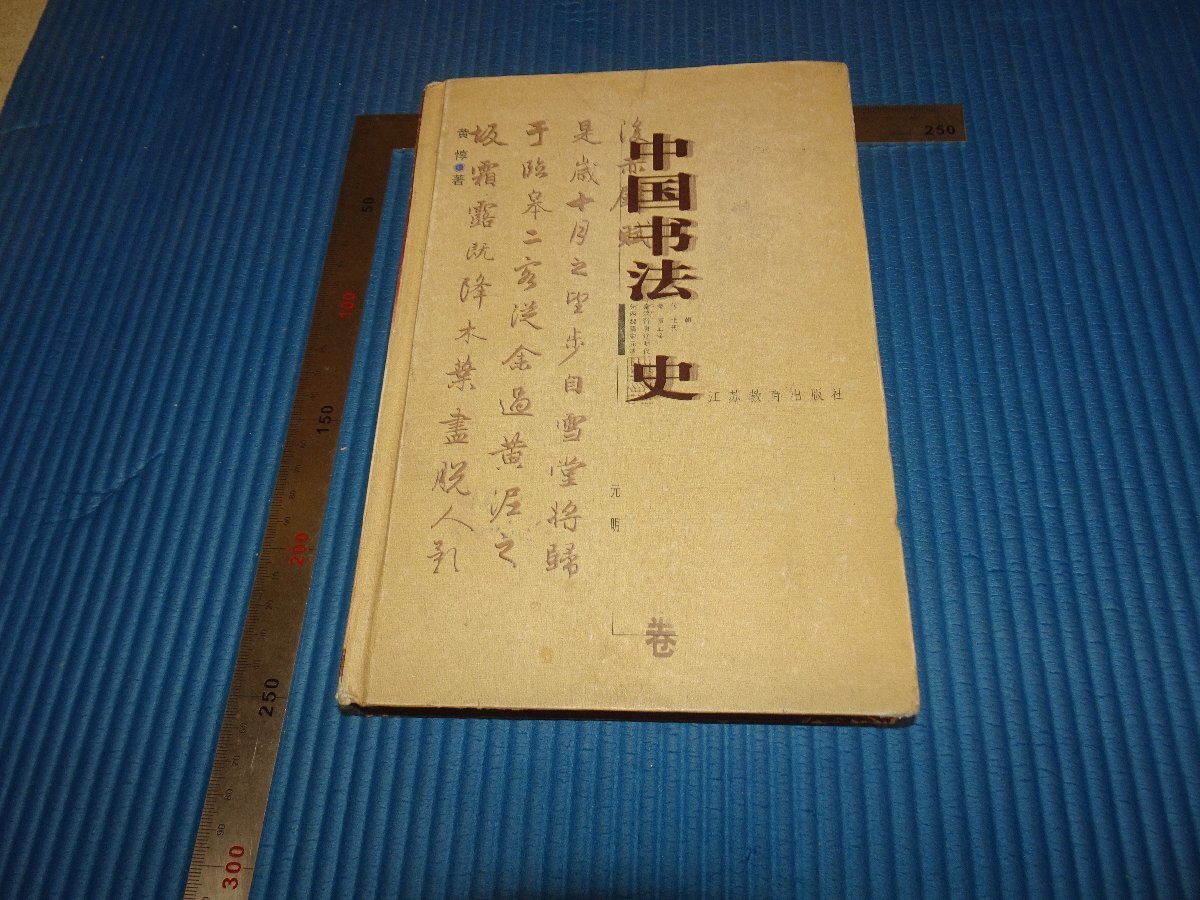 中国书法史
江苏教育出版社
元明
卷
黄惇 著
後赤壁賦
是歲十月之望步自雪堂將歸
于臨皋二客從余過黃泥之
坂霜露既降木葉盡脫人影
50
100
150
200
250
300
250